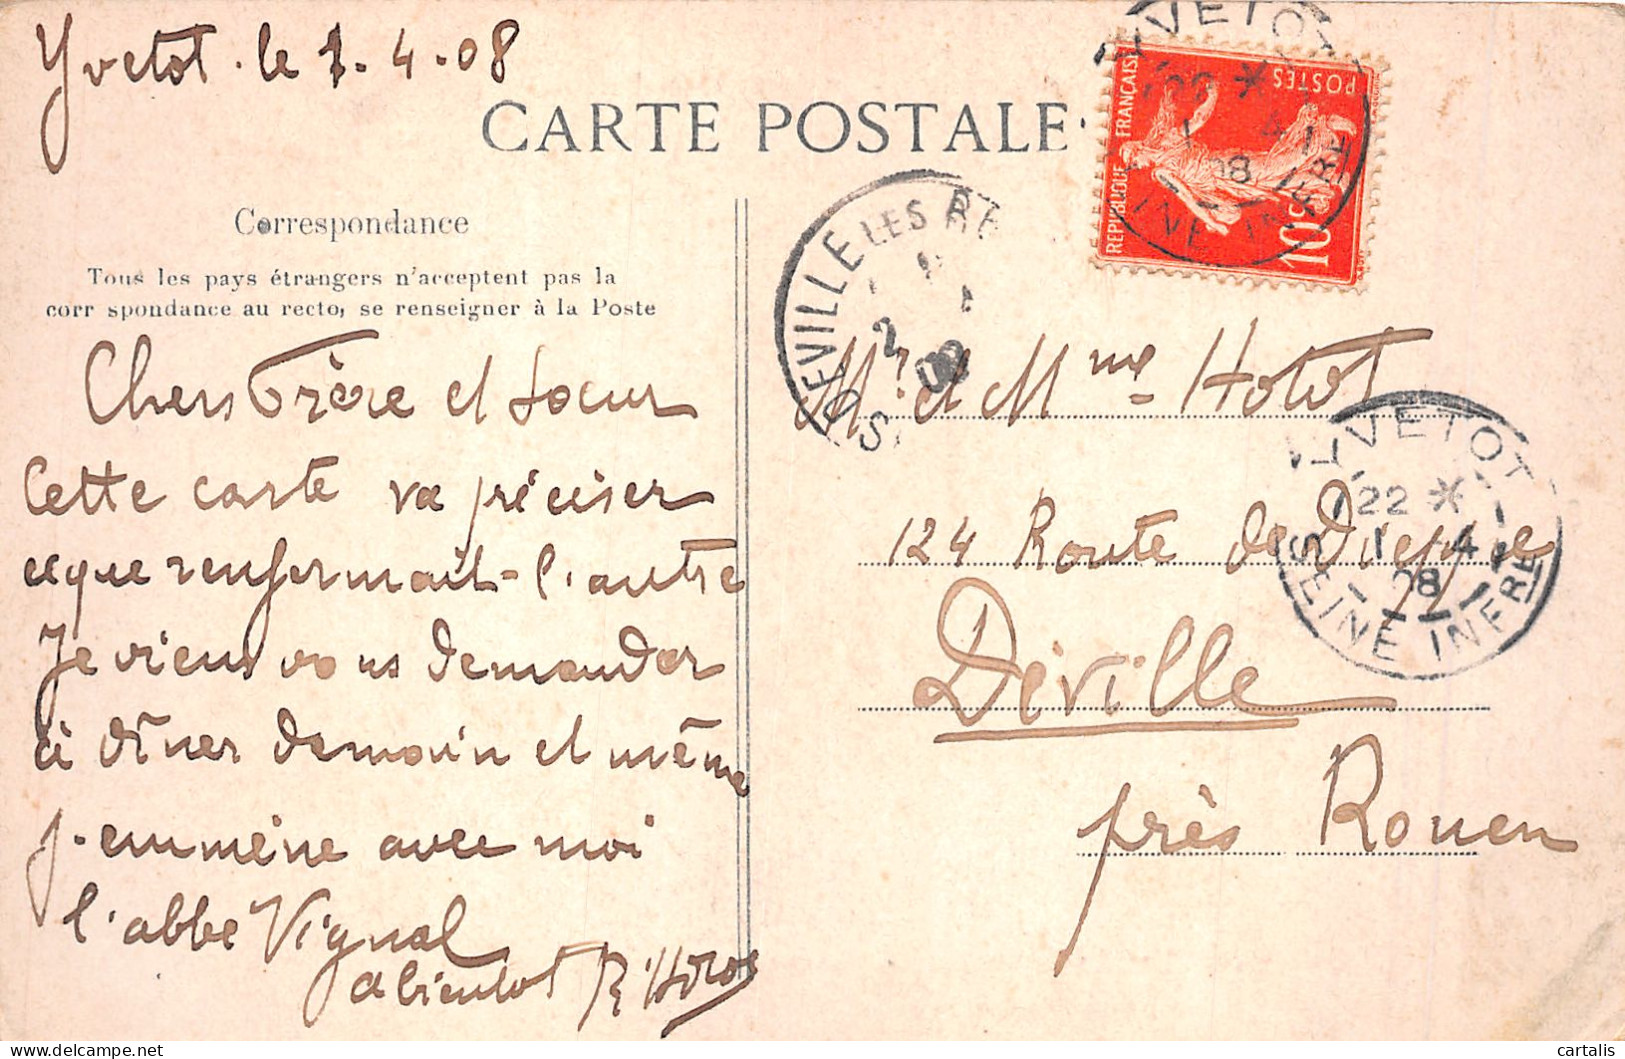 Yvetot. le 1. 4. 08
CARTE POSTALE
Correspondance
Tous les pays étrangers n'acceptent pas la
corr spondance au recto, se renseigner à la Poste
Chers Frère et Soeur
Cette carte va préciser
ce que renfermait l'autre
Je viens vous demander
à dîner demain et même
j'emmène avec moi
l'abbé Vignal
a bientot R.
Mr. et Mme Hotot
124 Route de Dieppe
Déville
près Rouen
REPUBLIQUE FRANÇAISE
POSTES
10c
YVETOT
22 *
1 4
08
SEINE INFRE
DEVILLE LES R
2
08
S
YVETOT
22 *
1 4
08
SEINE INFRE
cartalis
www.delcampe.net